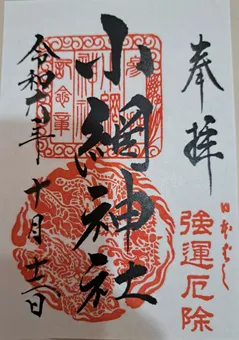 奉拝
日本ばし
強運厄除
小網神社
令和六年十月十二日